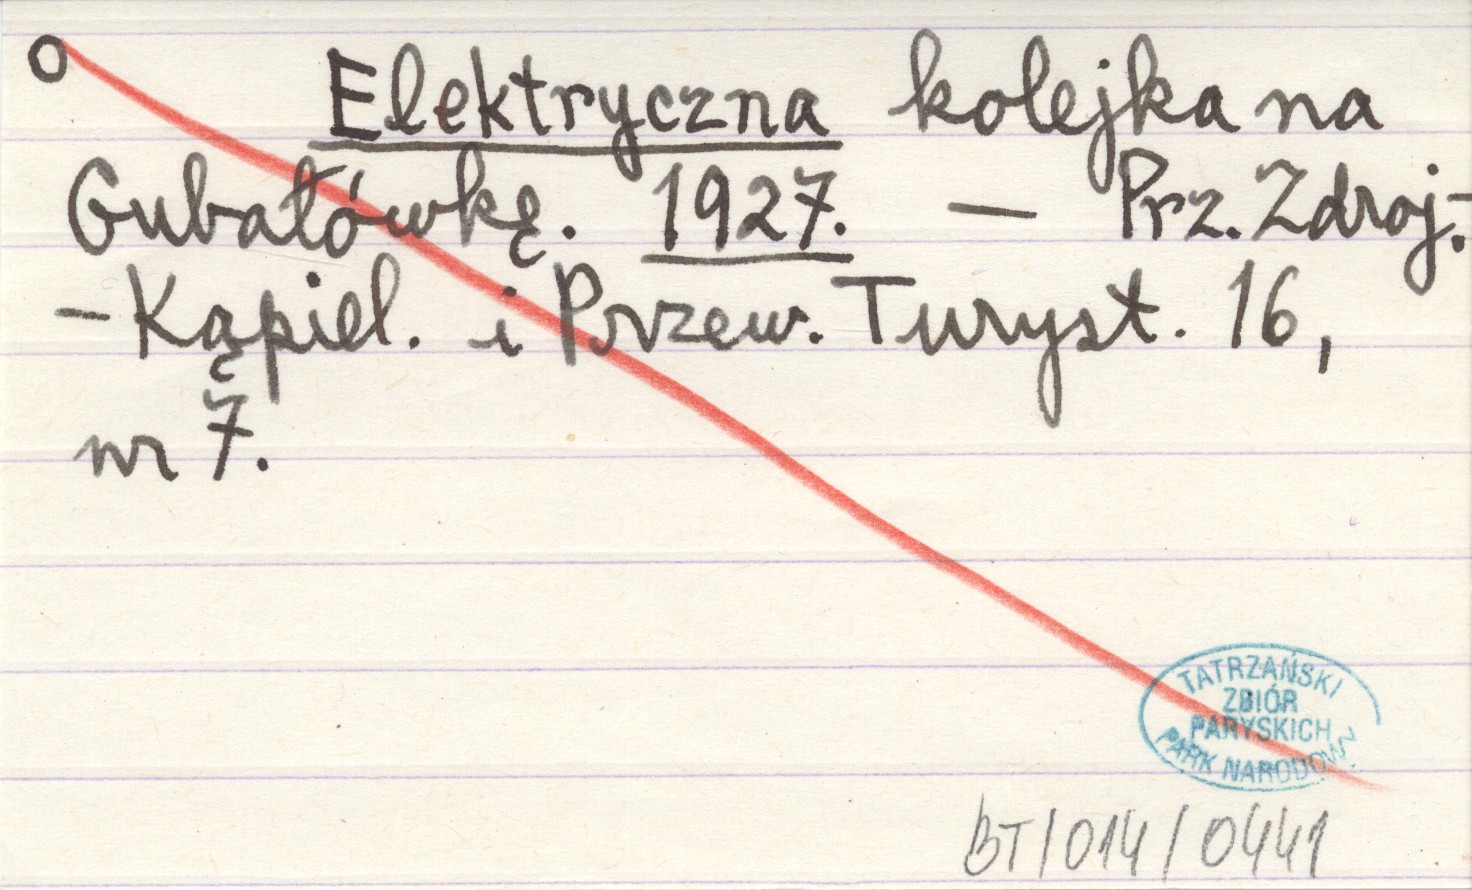 O Elektryczna kolejka na
Gubałówkę. 1927. — Prz. Zdroj.-
-Kąpiel. i Przew. Turyst. 16,
nr 7.
TATRZAŃSKI
ZBIÓR
PARYSKICH
PARK NARODOWY
BT/014/0441